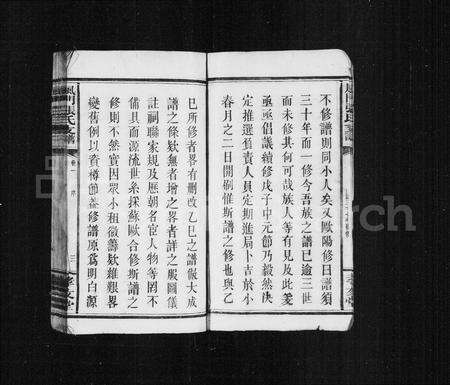 不修譜則同小人矣又歐陽修曰譜須
三十年而一修今吾族之譜已逾三世
而未修其何可哉族人等有見及此爰
亟亟倡議續修戊子中元節乃毅然決
定推選負責人員定期進局卜吉於小
春月之二日開刷惟斯譜之修也與乙
巳所修者畧有刪改乙巳之譜倣大成
譜之條欵無者增之畧者詳之服圖儀
註祠聯家規及歷朝名宦人物等罔不
備具而源流世系採蘇歐合修斯譜之
修則不然實因眾小租微籌欵維艱畧
變舊例以資樽節蓋修譜原爲明白源
卷一 序
三